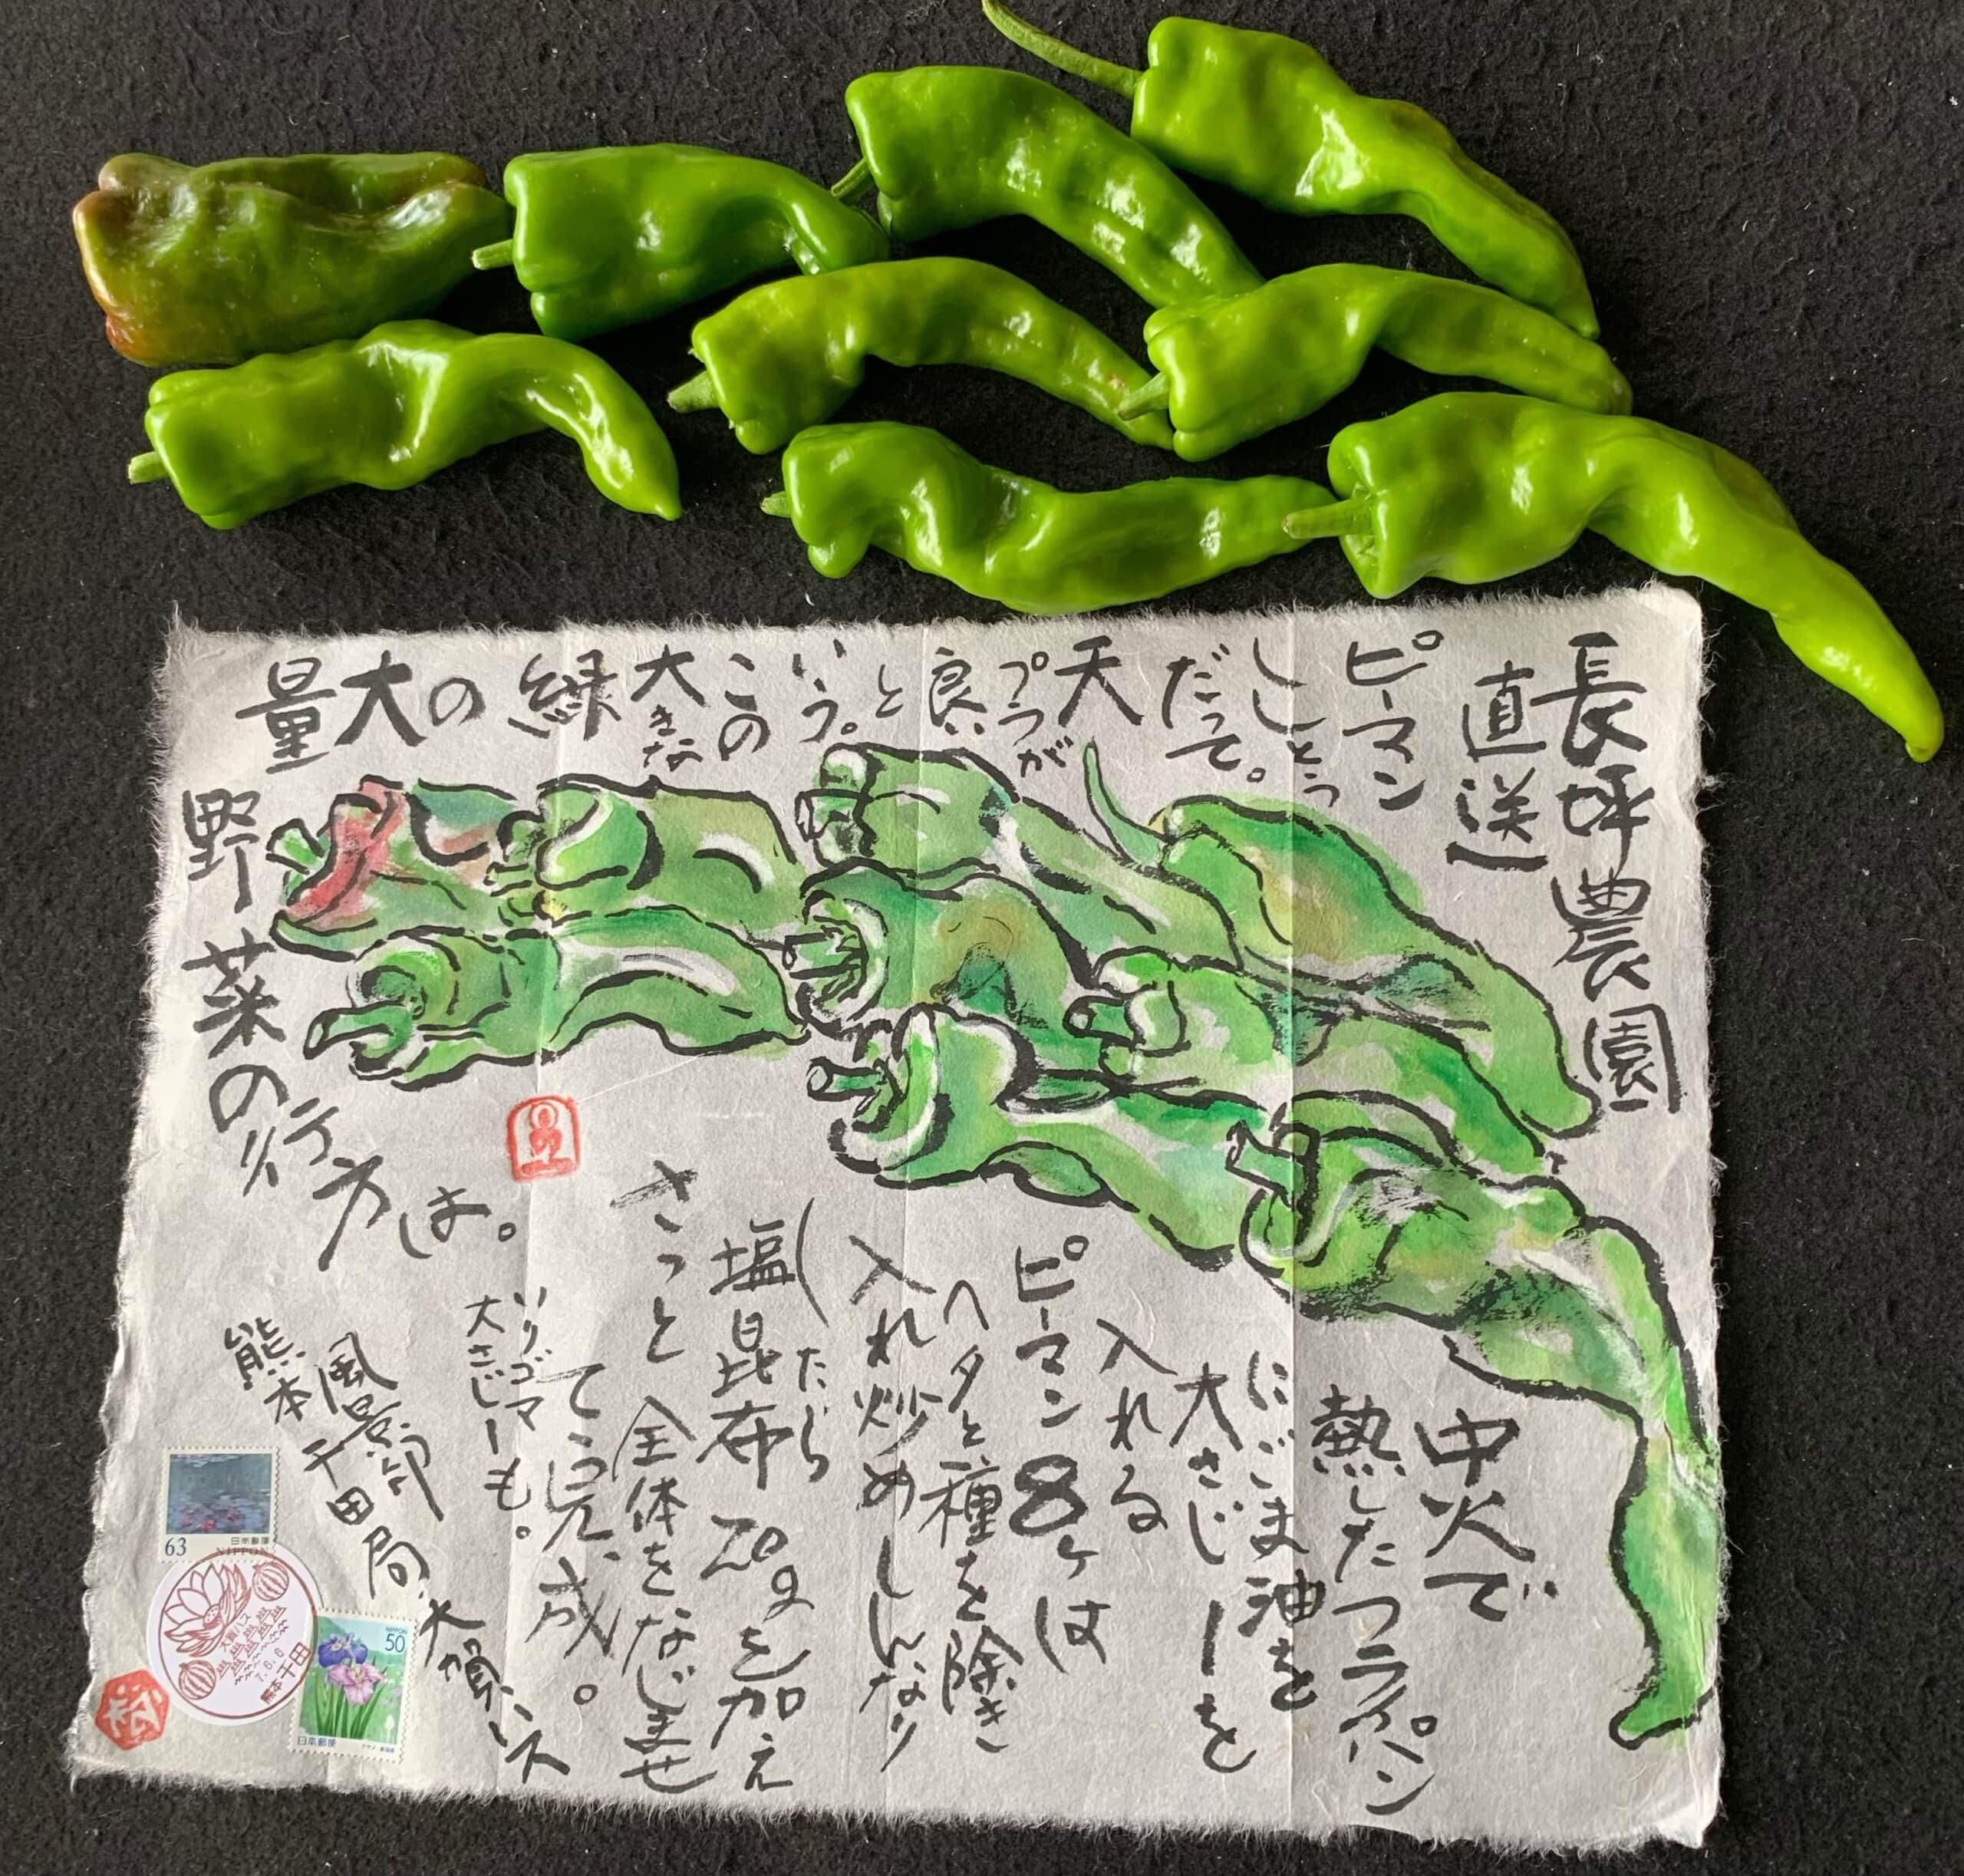 長坪農園
直送
ピーマン
ししとう
だって。
天
プラが
良い
と
いう。
この
大きな
緑
の
大
量
野菜の行
方は。
中火で
熱したフライパン
にごま油を
大さじ1を
入れる
ピーマン8ケは
ヘタと種を除き
入れ炒めしんなり
(たら
塩昆布20gを加え
さっと全体をなじませ
て完成。
いりゴマ
大さじ1も。
風景印
熊本千田局
大賀ハス
63
日本郵便
NIPPON
大賀ハス
7.6.6
熊本・千田
NIPPON
50
日本郵便